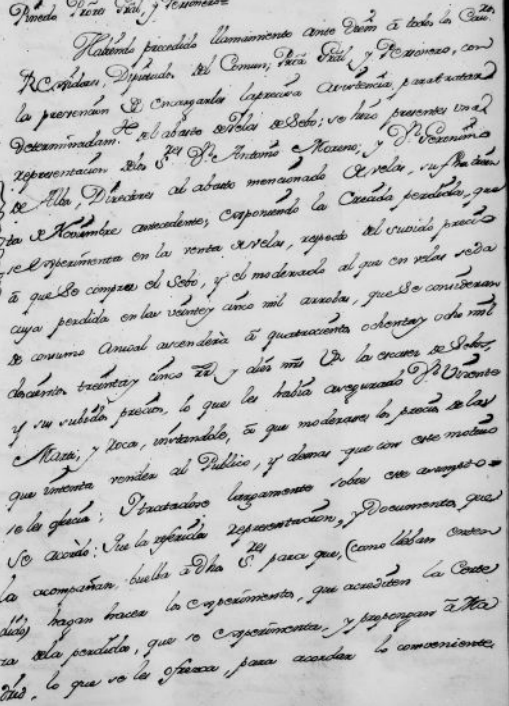 Pineda Prōres Grāl, y Personero
Habiendo precedido llamamiento ante Diem ā todos los Cavros
Rexidores, Diputados del Comun, Prōr Grāl y Personero, con
la prevencion de encargarles la precisa asistencia, para tratar
determinadam.te del abasto de Velas de Sebo; se hizo presente una
representacion de los S.res D.n Antonio Moreno, y D.n Geronimo
de Alba, Directores al abasto mencionado de velas, su fha
ta de Noviembre antecedente, exponiendo la crecida perdida, que
se experimenta en la venta de velas, respecto del subido precio
ā que se compra el Sebo, y el moderado al que en velas se da
cuya perdida en las veinte y cinco mil arrobas, que se consideran
de consumo Anual ascenderà ā quatrocientos ochenta y ocho mil
doscientos treinta y cinco rr.s y diez mrs la escasez de Sebos,
y sus subidos precios, lo que les habia asegurado D.n Vicente
Mazi, y Roca, instandole, ā que moderase los precios de las
que intenta vender al Publico, y demas que con este motivo
se les ofrecia; Y tratadose largamente sobre este asumpto =
Se acordó: Que la referida representacion, y Documentos que
la acompañan, buelba a dha S.res para que, (como llevan enten
dido) hagan hacer los experimentos, que acrediten la Certe
za de la perdida, que se experimenta, y propongan ā Ma
drid, lo que se les ofrezca, para acordar lo combeniente